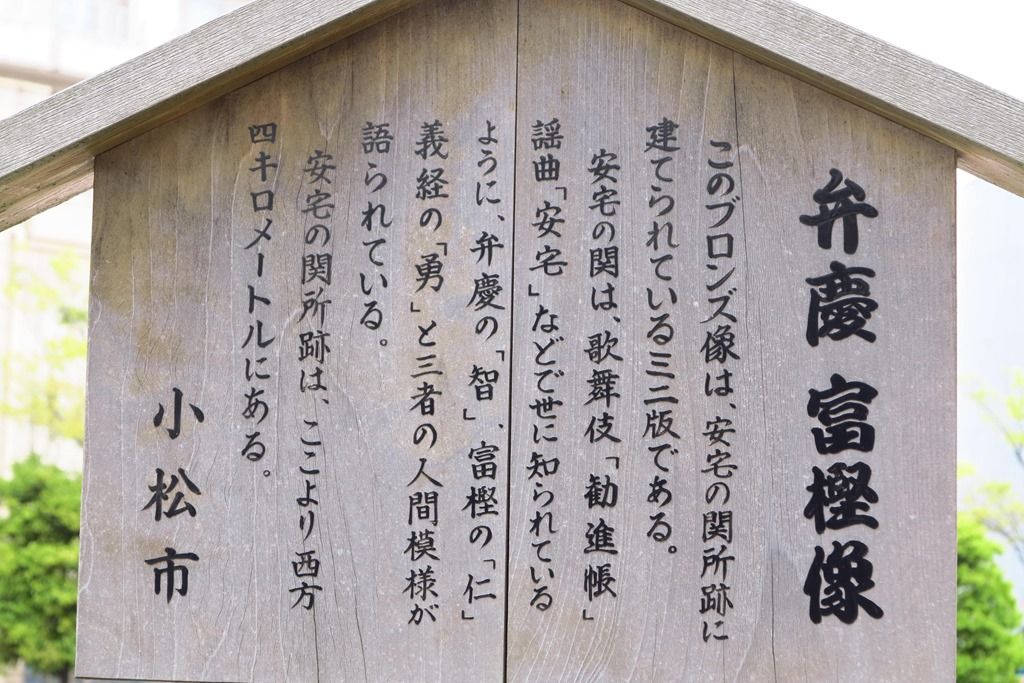 弁慶 富樫像
このブロンズ像は、安宅の関所跡に
建てられているミニ版である。
安宅の関は、歌舞伎「勧進帳」
謡曲「安宅」などで世に知られている
ように、弁慶の「智」、富樫の「仁」
義経の「勇」と三者の人間模様が
語られている。
安宅の関所跡は、ここより西方
四キロメートルにある。
小松市